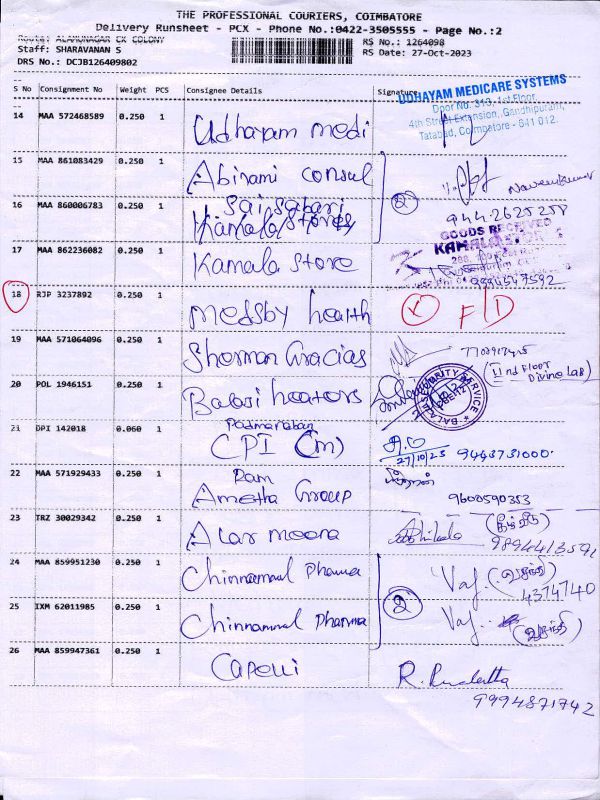 THE PROFESSIONAL COURIERS, COIMBATORE
Delivery Runsheet - PCX - Phone No.:0422-3505555 - Page No.:2
Route: ALAMUNAGAR CK COLONY
RS No.: 1264098
Staff: SHARAVANAN S
RS Date: 27-Oct-2023
DRS No.: DCJB126409802
S No Consignment No Weight PCS Consignee Details Signature
UDHAYAM MEDICARE SYSTEMS
Door No. 313, 1st Floor,
4th Street Extension, Gandhipuram,
Tatabad, Coimbatore - 641 012.
14 MAA 572468589 0.250 1 Udhayam medi
15 MAA 861083429 0.250 1 Abirami consul
Naveenkumar
16 MAA 860006783 0.250 1 Sai Sabari
Kamala Stores
2
944 2625258
GOODS RECEIVED
KAMALA
17 MAA 862236082 0.250 1 Kamala Store
9994547592
18 RJP 3237892 0.250 1 Medsby health F/D
19 MAA 571064096 0.250 1 Shorman Gracias
(IInd Floor
Divine Lab)
20 POL 1946151 0.250 1 Balaji heaters
21 DPI 142018 0.060 1 Padmanaban
CPI (m)
27/10/23 9443731000
22 MAA 571929433 0.250 1 Ram
Ametha Group
9600590353
23 TRZ 30029342 0.250 1 Alar moona
9894413591
24 MAA 859951230 0.250 1 Chinnammal Pharma
Vaj.
4374740
2
25 IXM 62011985 0.250 1 Chinnammal Pharma
Vaj.
26 MAA 859947361 0.250 1 Capelli
R.
9994871742